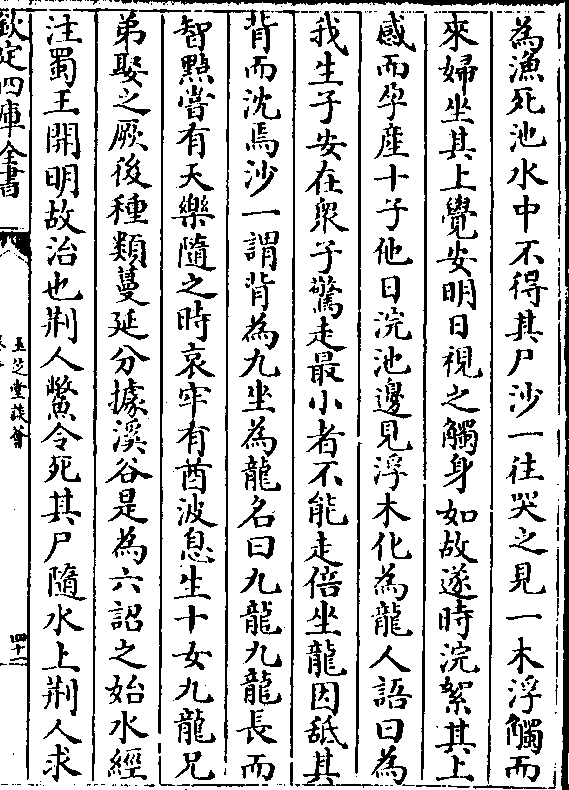 為漁死池水中不得其尸沙一往哭之見一木浮觸而
來婦坐其上覺安明日視之觸身如故遂時浣絮其上
感而孕産十子他日浣池邊見浮木化為龍人語曰為
我生子安在衆子驚走最小者不能走倍坐龍因舐其
背而沈焉沙一謂背為九坐為龍名曰九龍九龍長而
智黠嘗有天樂隨之時哀牢有酋波息生十女九龍兄
弟娶之厥後種類蔓延分據溪谷是為六詔之始水經
注蜀王開明故治也荆人鱉令死其尸隨水上荆人求
欽定四庫全書
玉芝堂談薈
四十二